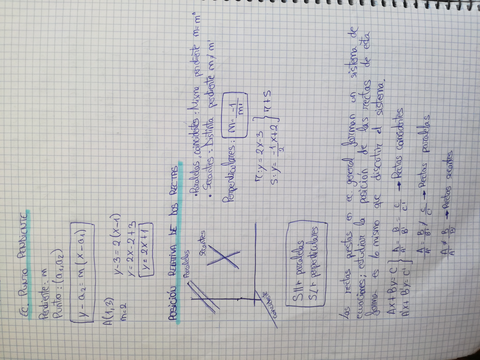 EC. PUNTO PENDIENTE
Pendiente: m
Punto: (a₁, a₂)
y - a₂ = m (x - a₁)
A (1, 3)
m = 2
y - 3 = 2 (x - 1)
y = 2x - 2 + 3
y = 2x + 1
POSICIÓN RELATIVA DE DOS RECTAS
Paralelas
Secantes
Coincidentes
• Paralelas, coincidentes: Misma pendiente m = m'
• Secantes: Distinta pendiente m ≠ m'
Perpendiculares: m = -1/m'
r: y = 2x - 3
s: y = -1/2 x + 2
r ± s
S || paralelas
S ⊥ perpendiculares
Las rectas puestas en ec general forman un sistema de
ecuaciones: estudiar la posición de las rectas de esta
forma es lo mismo que discutir el sistema.
Ax + By = C
A'x + B'y = C'
A/A' = B/B' = C/C' → Rectas coincidentes
A/A' = B/B' ≠ C/C' → Rectas paralelas
A/A' ≠ B/B' → Rectas secantes